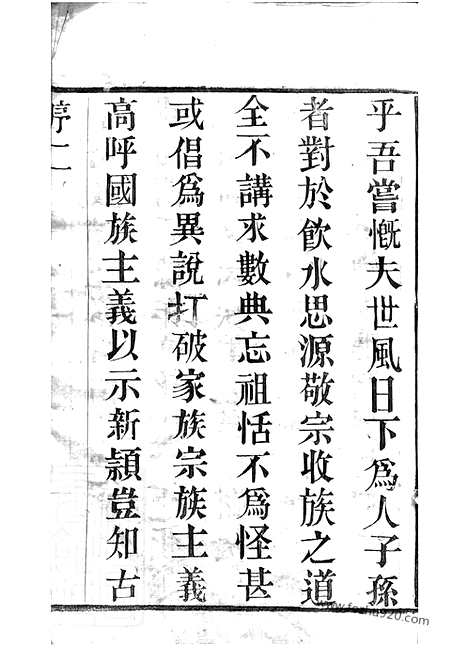 乎吾嘗慨夫世風日下爲人子孫
者對於飮水思源敬宗收族之道
全不講求數典忘祖恬不爲怪甚
或倡爲異說打破家族宗族主義
高呼國族主義以示新穎豈知古
序二